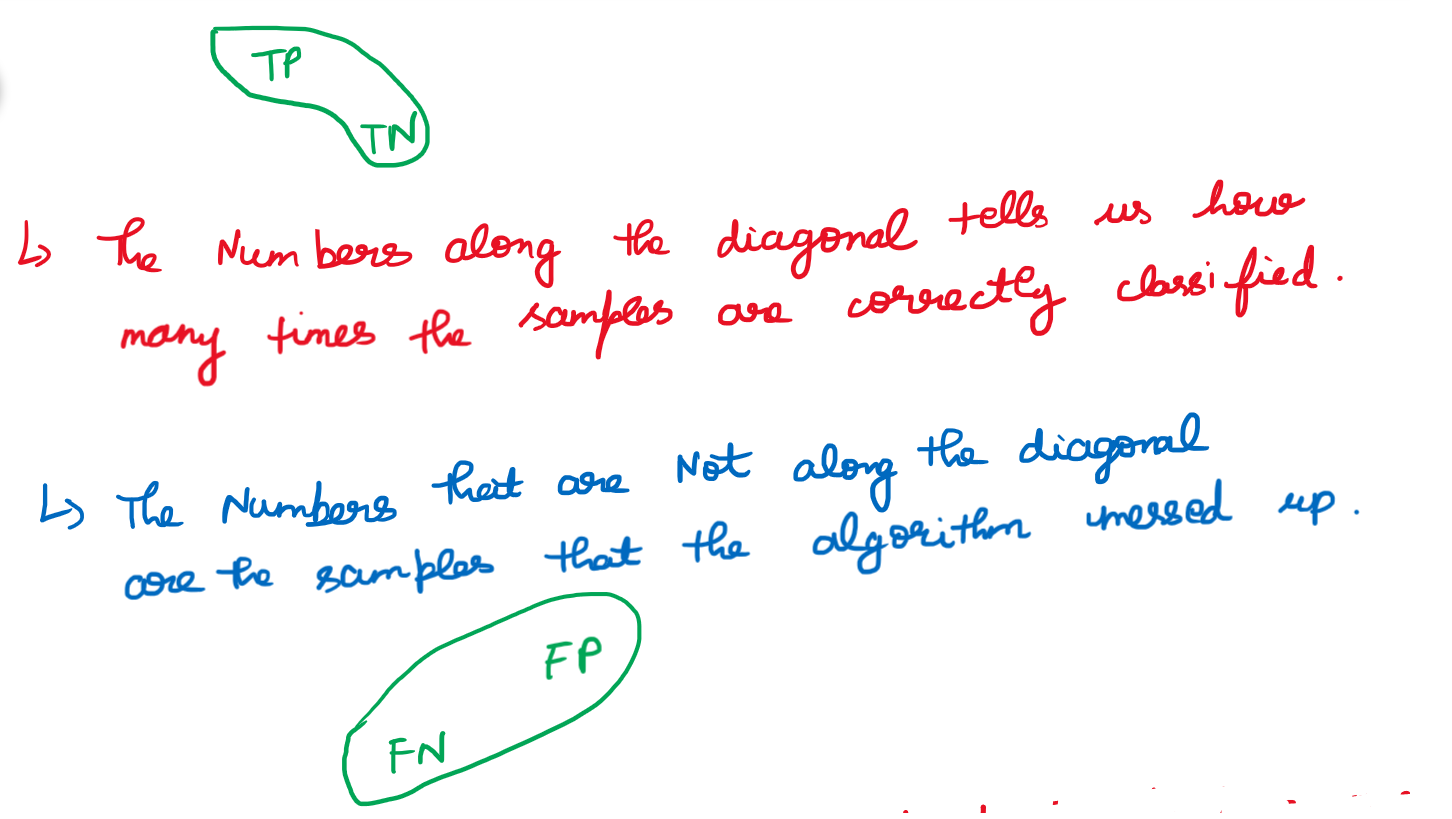 TP
TN
↳ The Numbers along the diagonal tells us how
many times the samples are correctly classified.
↳ The Numbers that are Not along the diagonal
are the samples that the algorithm messed up.
FP
FN